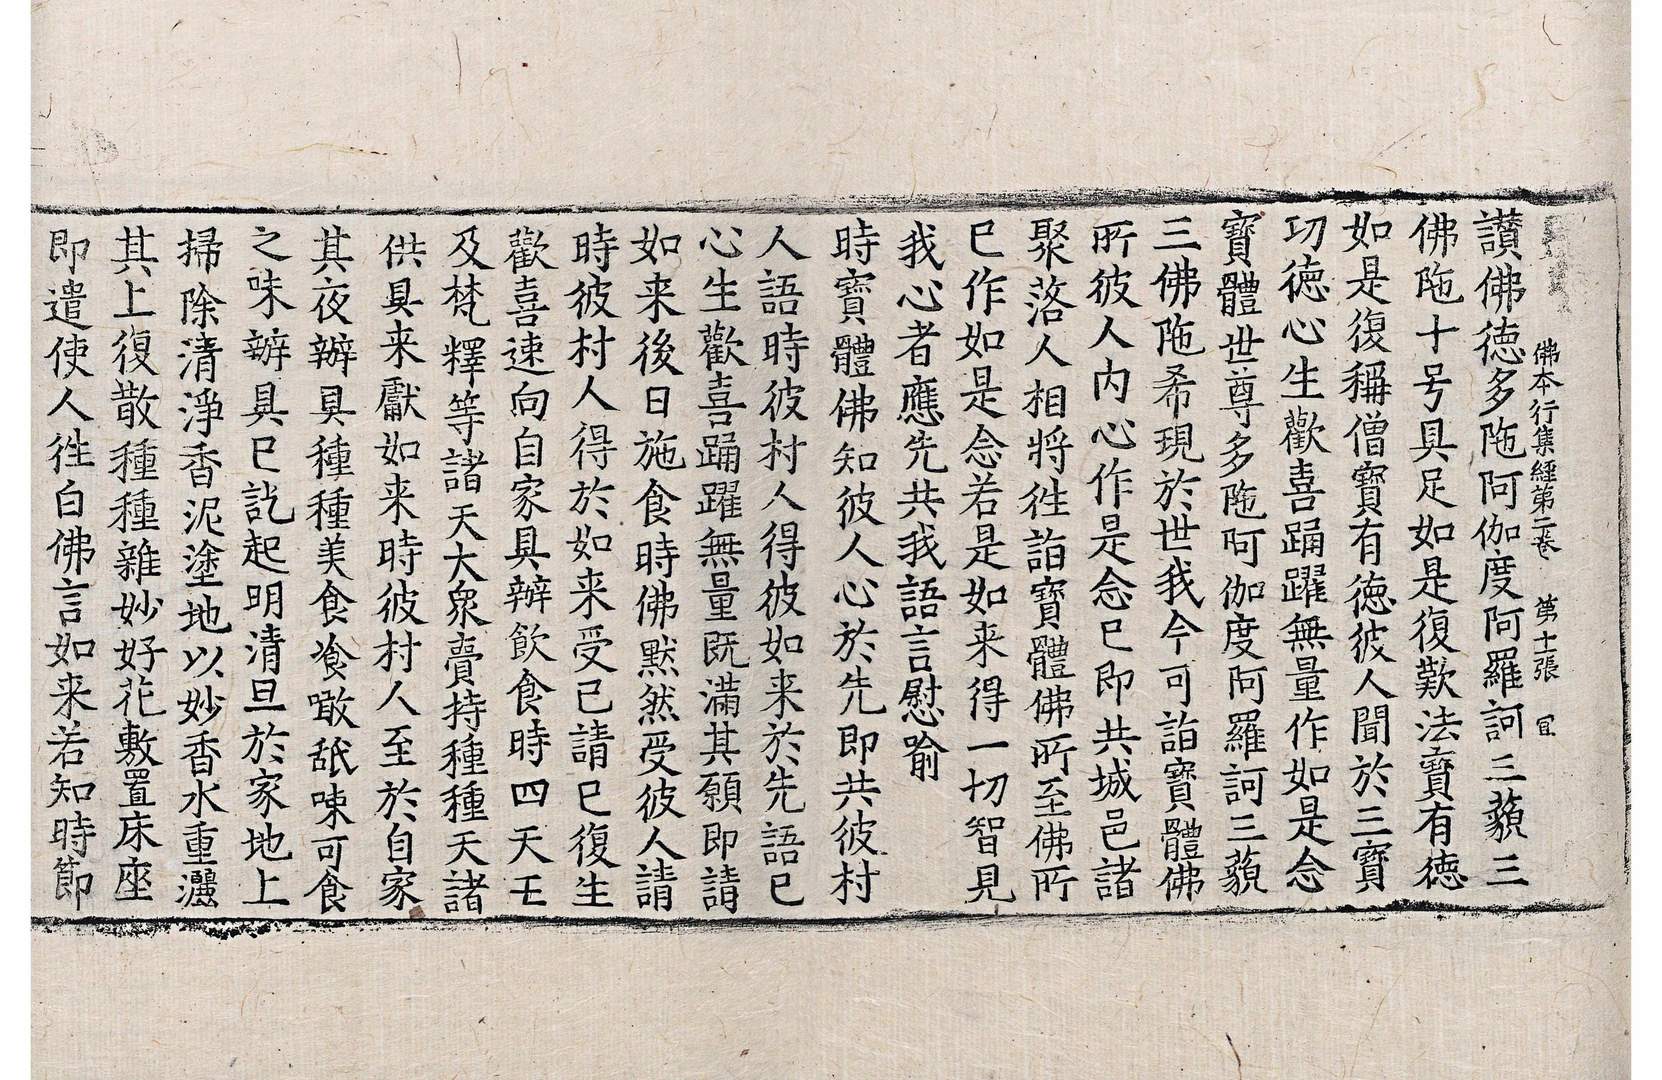 佛本行集經第二卷 第十一張 宜
讃佛徳多陁阿伽度阿羅訶三藐三
佛陁十号具足如是復歎法寶有徳
如是復稱僧寶有徳彼人聞於三寶
功徳心生歡喜踊躍無量作如是念
寶體世尊多陁阿伽度阿羅訶三藐
三佛陁希現於世我今可詣寶體佛
所彼人内心作是念已即共城邑諸
聚落人相將徃詣寶體佛所至佛所
已作如是念若是如来得一切智見
我心者應先共我語言慰喻
時寶體佛知彼人心於先即共彼村
人語時彼村人得彼如来於先語已
心生歡喜踊躍無量既滿其願即請
如来後日施食時佛默然受彼人請
時彼村人得於如来受已請已復生
歡喜速向自家具辦飲食時四天王
及梵釋等諸天大衆賷持種種天諸
供具来獻如来時彼村人至於自家
其夜辦具種種美食飡噉舐㖨可食
之味辦具已訖起明清旦於家地上
掃除清淨香泥塗地以妙香水重灑
其上復散種種雜妙好花敷置床座
即遣使人徃白佛言如来若知時節